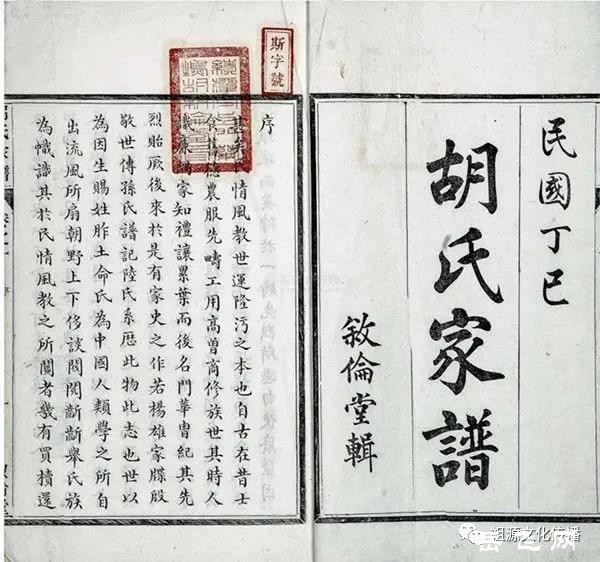 民國丁巳
胡氏家譜
敘倫堂輯
斯字號
序
甚矣情風教世運隆污之本也自古在昔士
食舊德農服先疇工用高曾商修族世其時人
識廉隅家知禮讓累葉而後名門華冑紀其先
烈貽厥後來於是有家史之作若楊雄家牒殷
敬世傳孫氏譜記陸氏系歷此物此志也世以
為因生賜姓胙土命氏為中國人類學之所自
出流風所扇朝野上下侈談閥閱斷斷舉氏族
為幟識其於民情風教之所關者幾有買櫝還
祖源文化传播